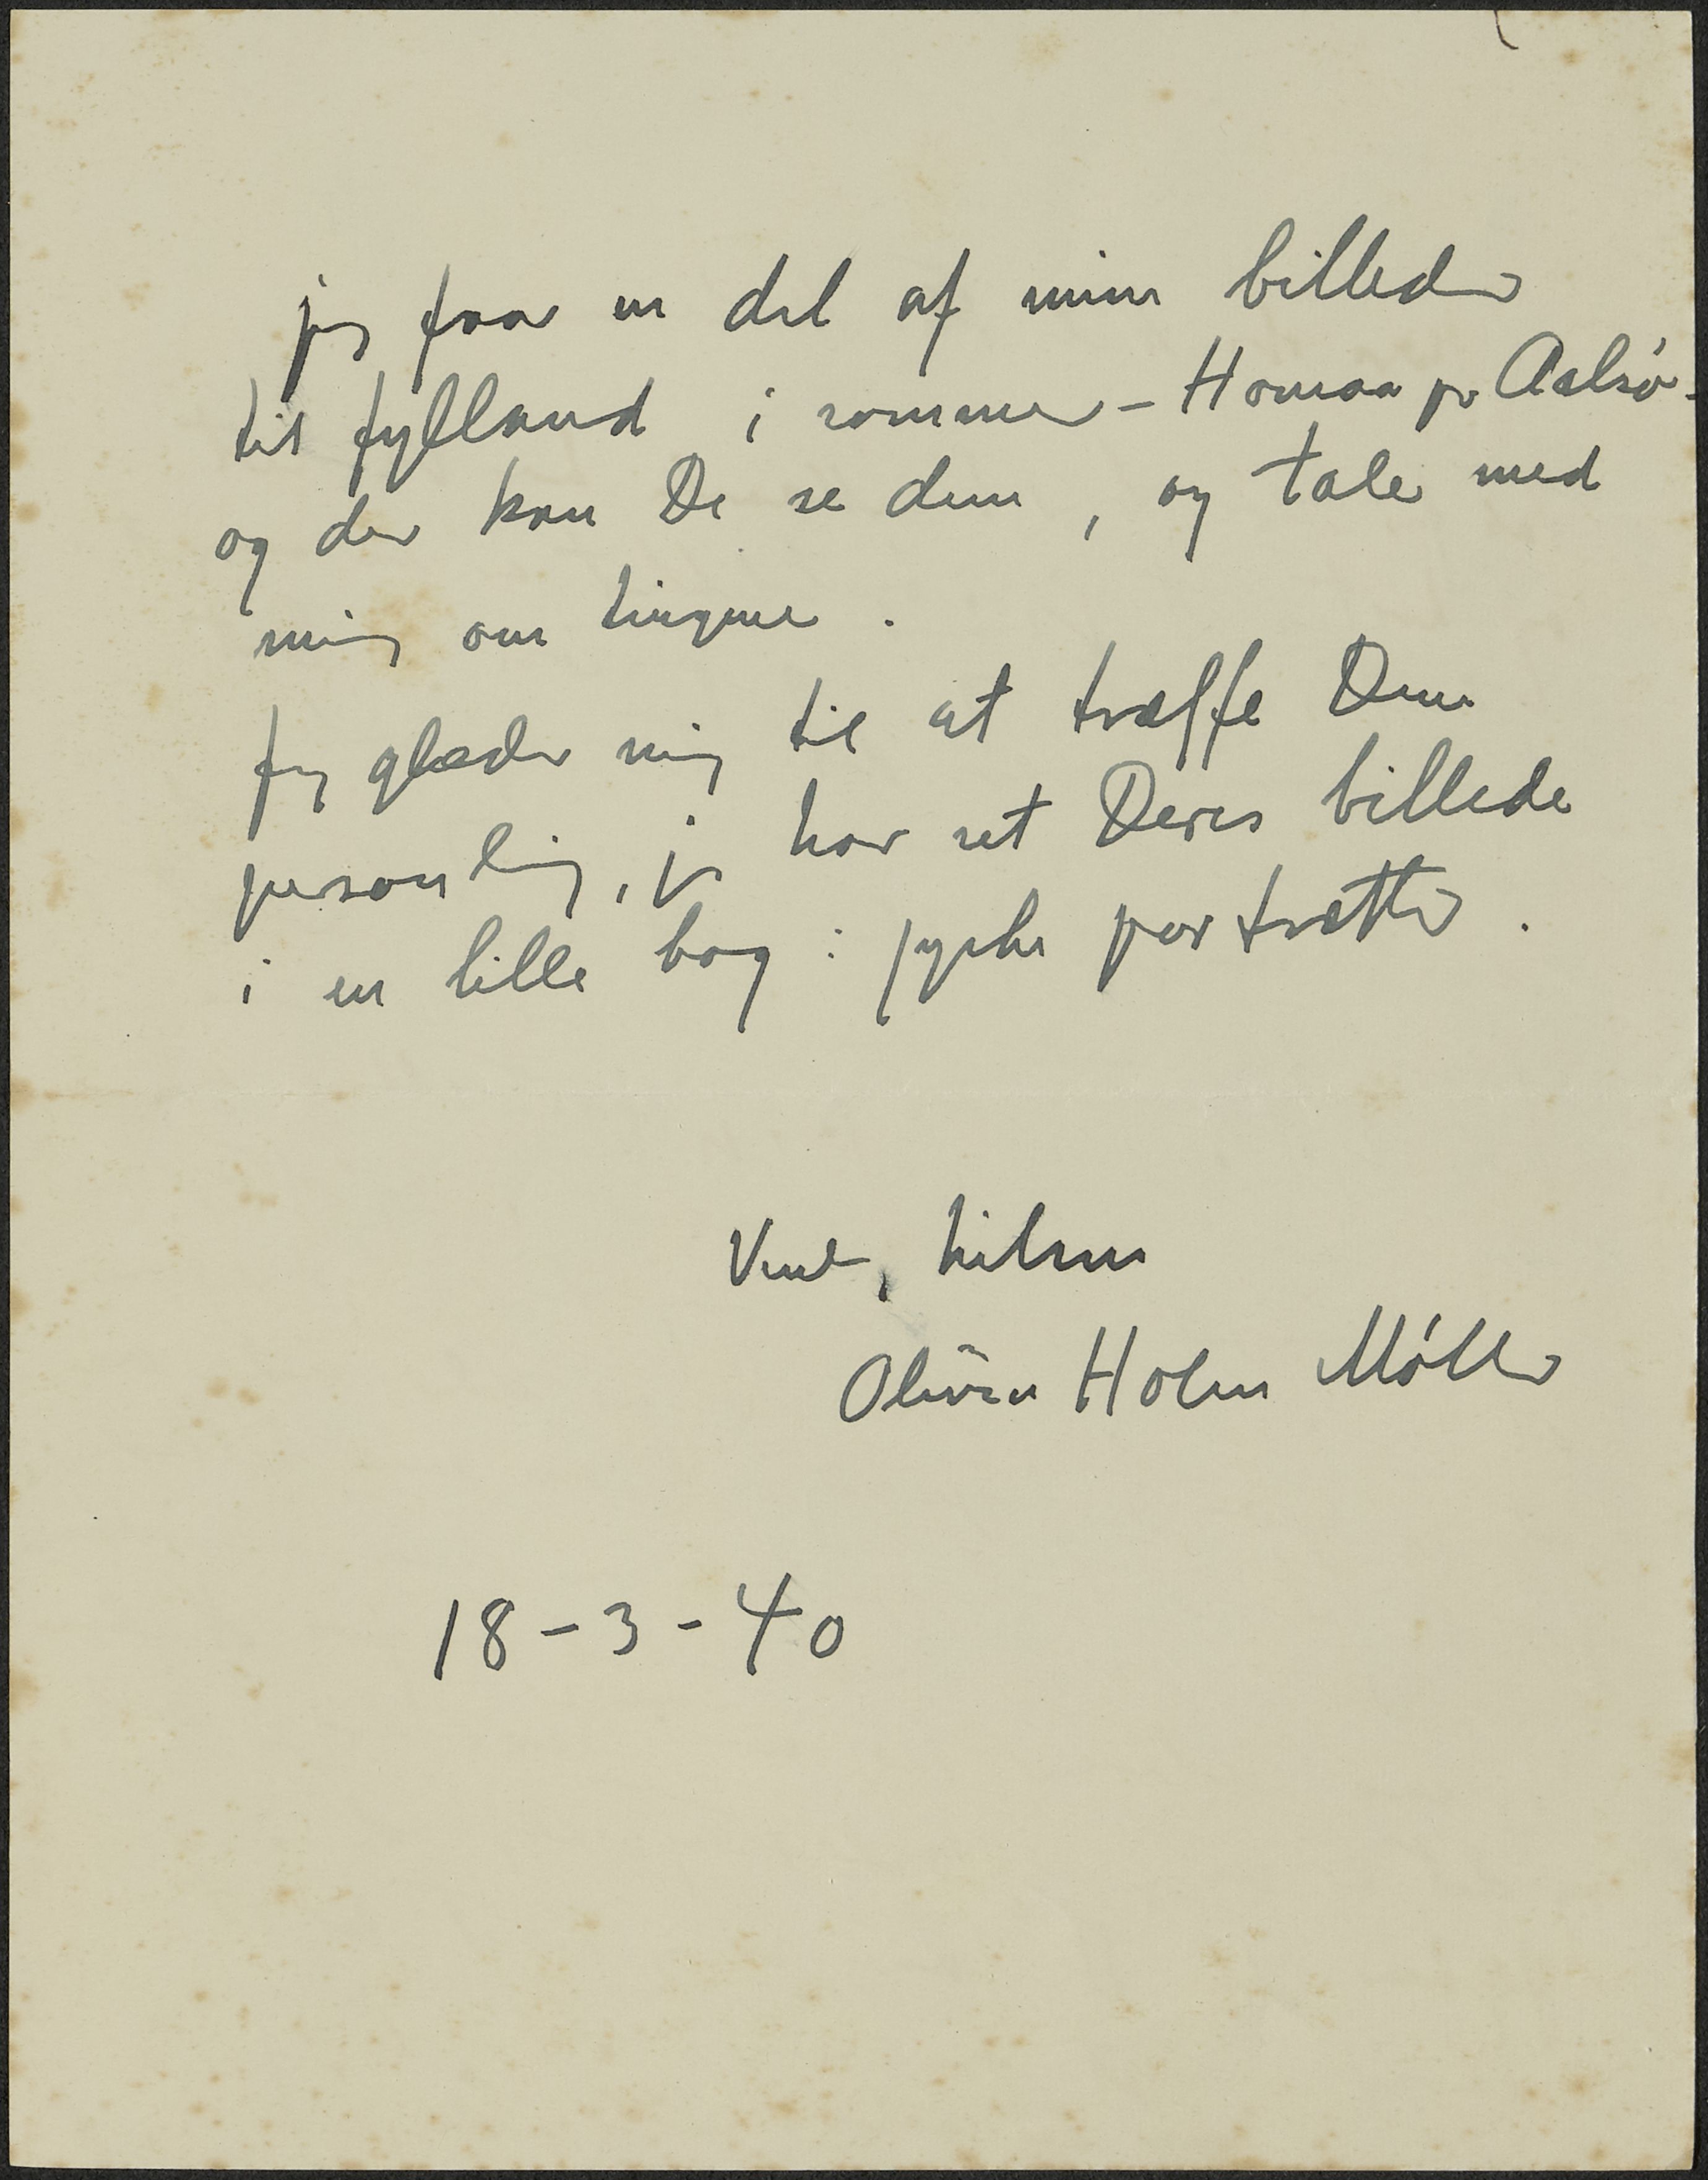 jeg faar en del af mine billeder
til Jylland i sommer – Homaa pr Aalsø –
og der kan De se dem, og tale med
mig om tingene.
Jeg glæder mig til at træffe Dem
personlig, jeg har set Deres billede
i en lille bog: jyske portrætter.
Venlig hilsen
Olivia Holm Møller
18-3-40